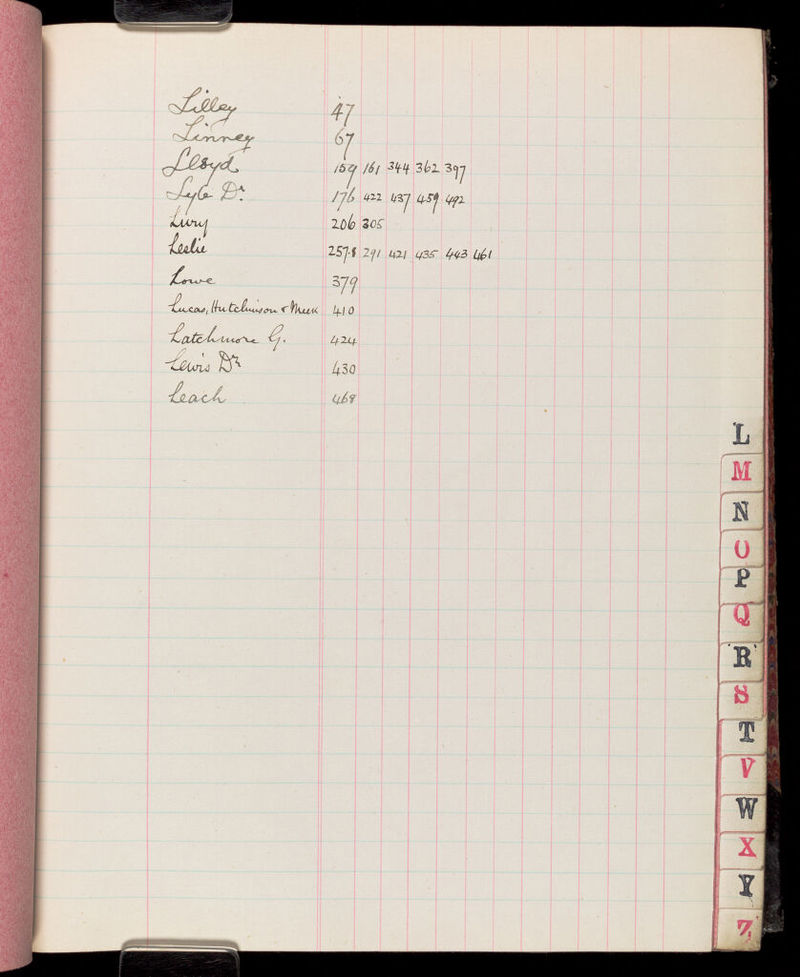 Lilley 47
Linney 67
Lloyd 159 161 344 362 397
Lyle Dr. 176 422 437 459 492
Lury 206 305
Leslie 257.8 291 421 435 443 461
Lowe 379
Lucas, Hutchinson & Meek 410
Latchmore G. 424
Lewis Dr 430
Leach 468
L
M
N
O
P
Q
R
S
T
V
W
X
Y
Z